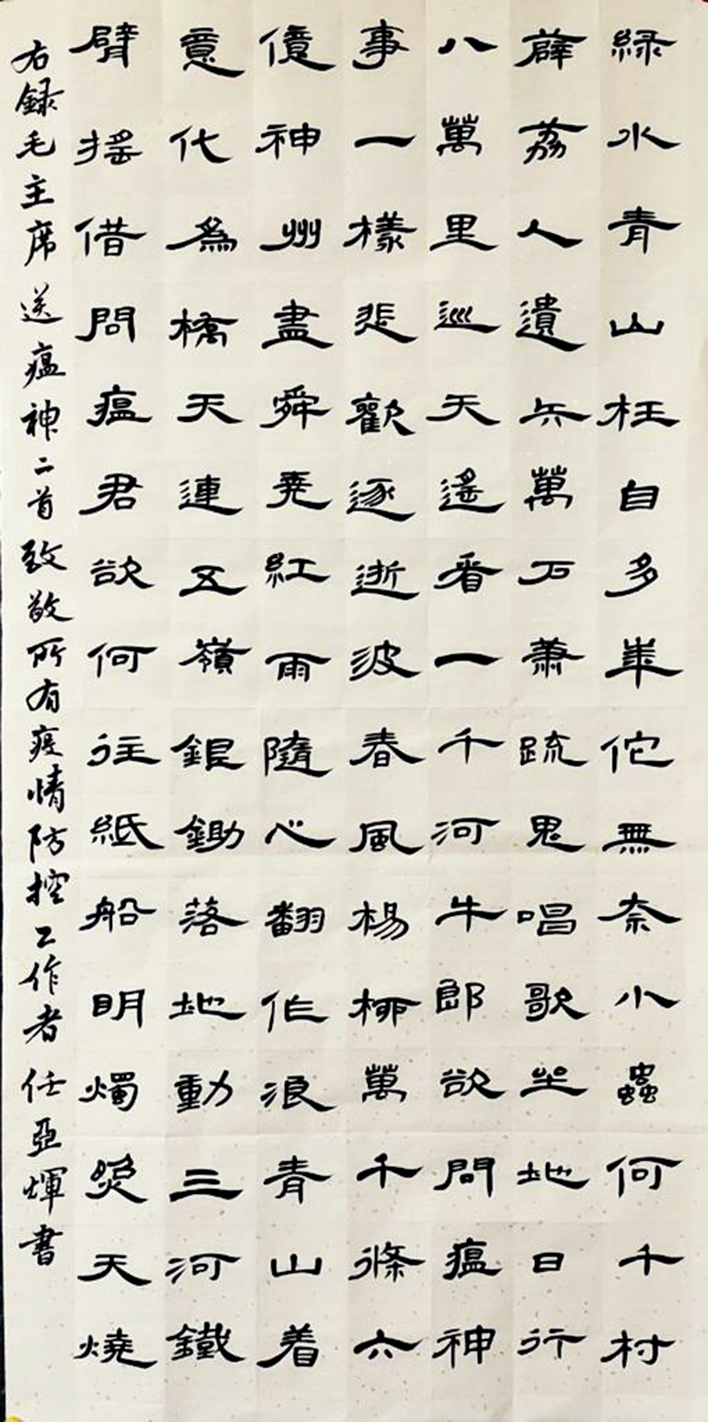 緑水青山枉自多華佗無奈小蟲何千村
薜荔人遺矢萬戶蕭疏鬼唱歌坐地日行
八萬里巡天遙看一千河牛郎欲問瘟神
事一樣悲歡逐逝波春風楊柳萬千條六
億神州盡舜堯紅雨隨心翻作浪青山着
意化爲橋天連五嶺銀鋤落地動三河鐵
臂搖借問瘟君欲何往紙船明燭照天燒
右録毛主席送瘟神二首致敬所有疫情防控工作者任亞煇書